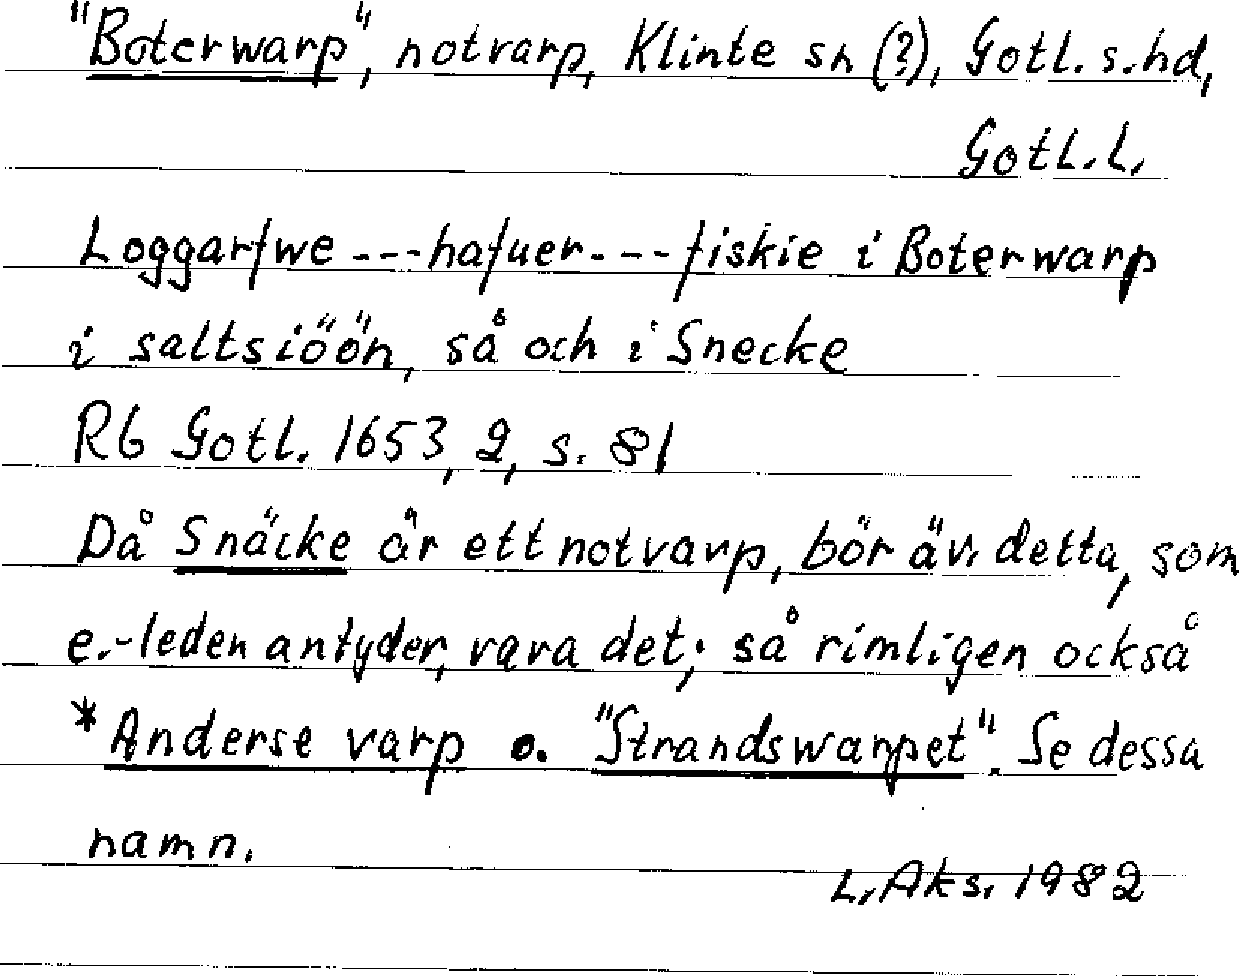 "Boterwarp", notvarp, Klinte sn (?), Gotl. s. hd,
Gotl. l.
Loggarfwe ---hafuer---fiskie i Boterwarp
i saltsiöön, så och i Snecke
Rb Gotl. 1653, 2, s. 81
Då Snäcke är ett notvarp, bör äv. detta, som
e.-leden antyder, vara det; så rimligen också
*Anderse varp o. "Strandswarpet". Se dessa
namn.
L. Aks. 1982